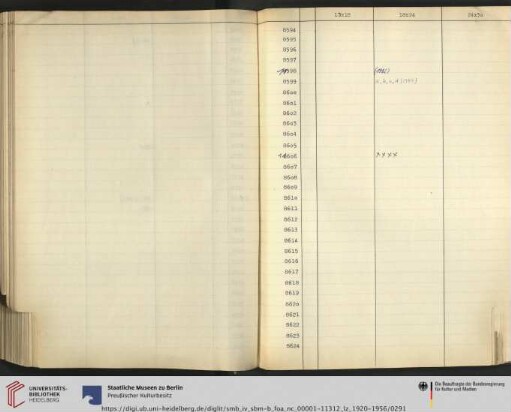 13x18 18x24 24x30
8594
8595
8596
8597
8598
8599
8600
8601
8602
8603
8604
8605
8606
8607
8608
8609
8610
8611
8612
8613
8614
8615
8616
8617
8618
8619
8620
8621
8622
8623
8624
UNIVERSITÄTS-
BIBLIOTHEK
HEIDELBERG
Staatliche Museen zu Berlin
Preußischer Kulturbesitz
Die Beauftragte der Bundesregierung
für Kultur und Medien
https://digi.ub.uni-heidelberg.de/diglit/smb_iv_sbm-b_foa_nc_00001-11312_lz_1920-1956/0291